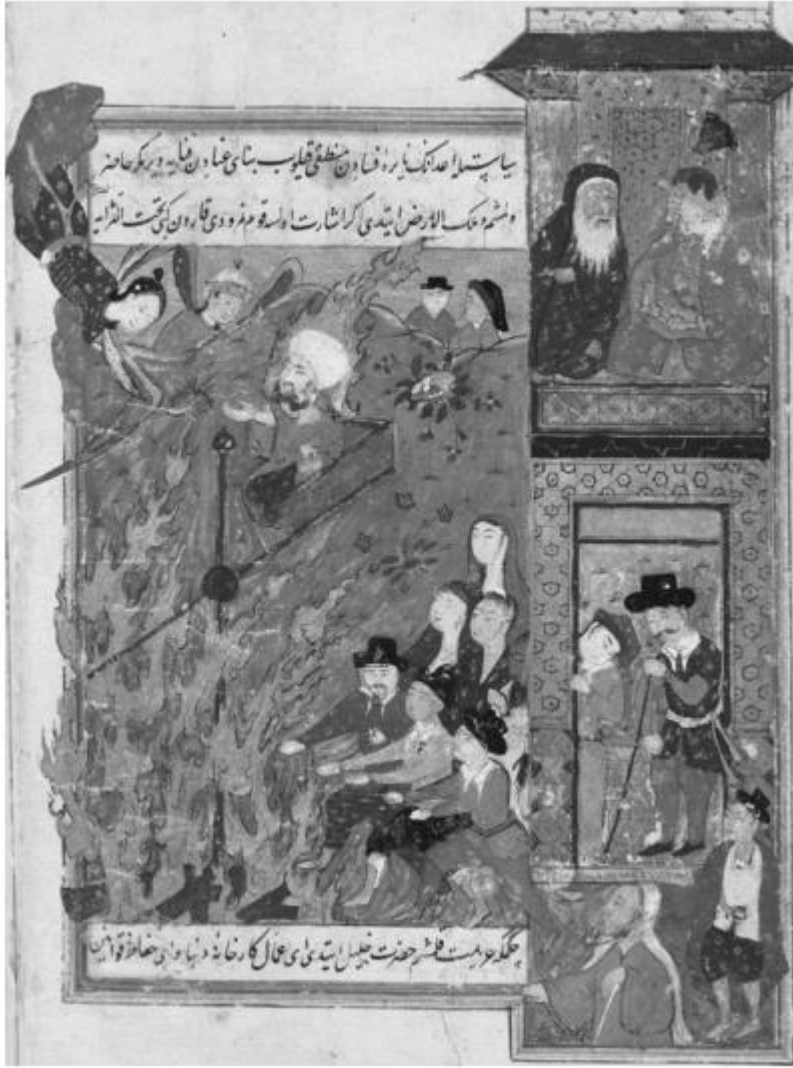 سیاستیله اعدانک نایرهٔ فسادن منطفی قیلوب بنای عنادن فنایه ویرمکه حاضر
ولمشم و ملک الارض ایتدی کر اشارت اولسه قوم نمرودی قارون کبی تحت الثرایه
چکمکه عزیمت قلمشم حضرت خلیل ایتدی ای عمال کارخانهٔ دنیا و ای حفاظ قوانین